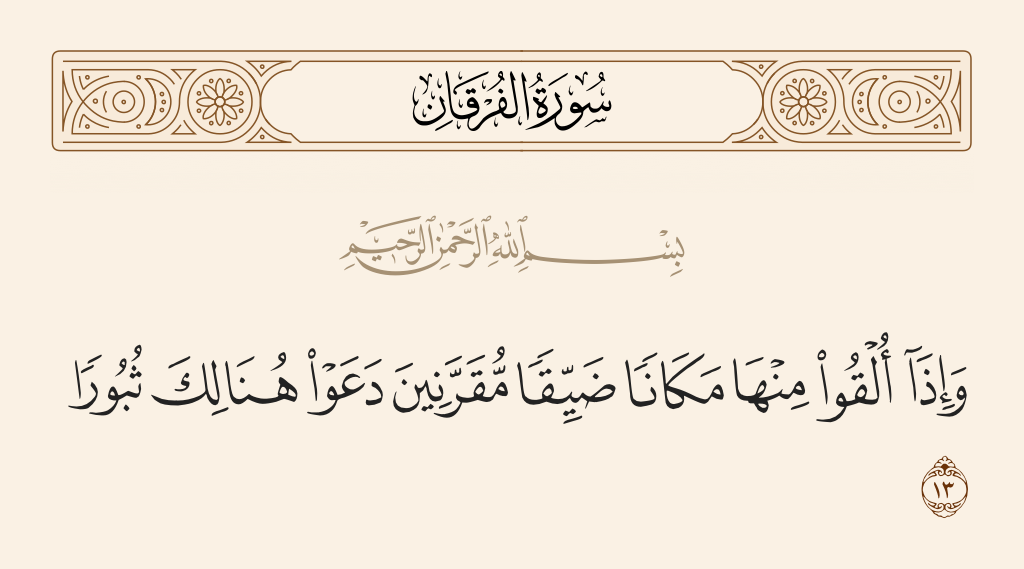 سُورَةُ الفُرْقَانِ
بِسْمِ ٱللَّهِ ٱلرَّحْمَٰنِ ٱلرَّحِيمِ
وَإِذَآ أُلْقُوا۟ مِنْهَا مَكَانًا ضَيِّقًا مُّقَرَّنِينَ دَعَوْا۟ هُنَالِكَ ثُبُورًا
١٣